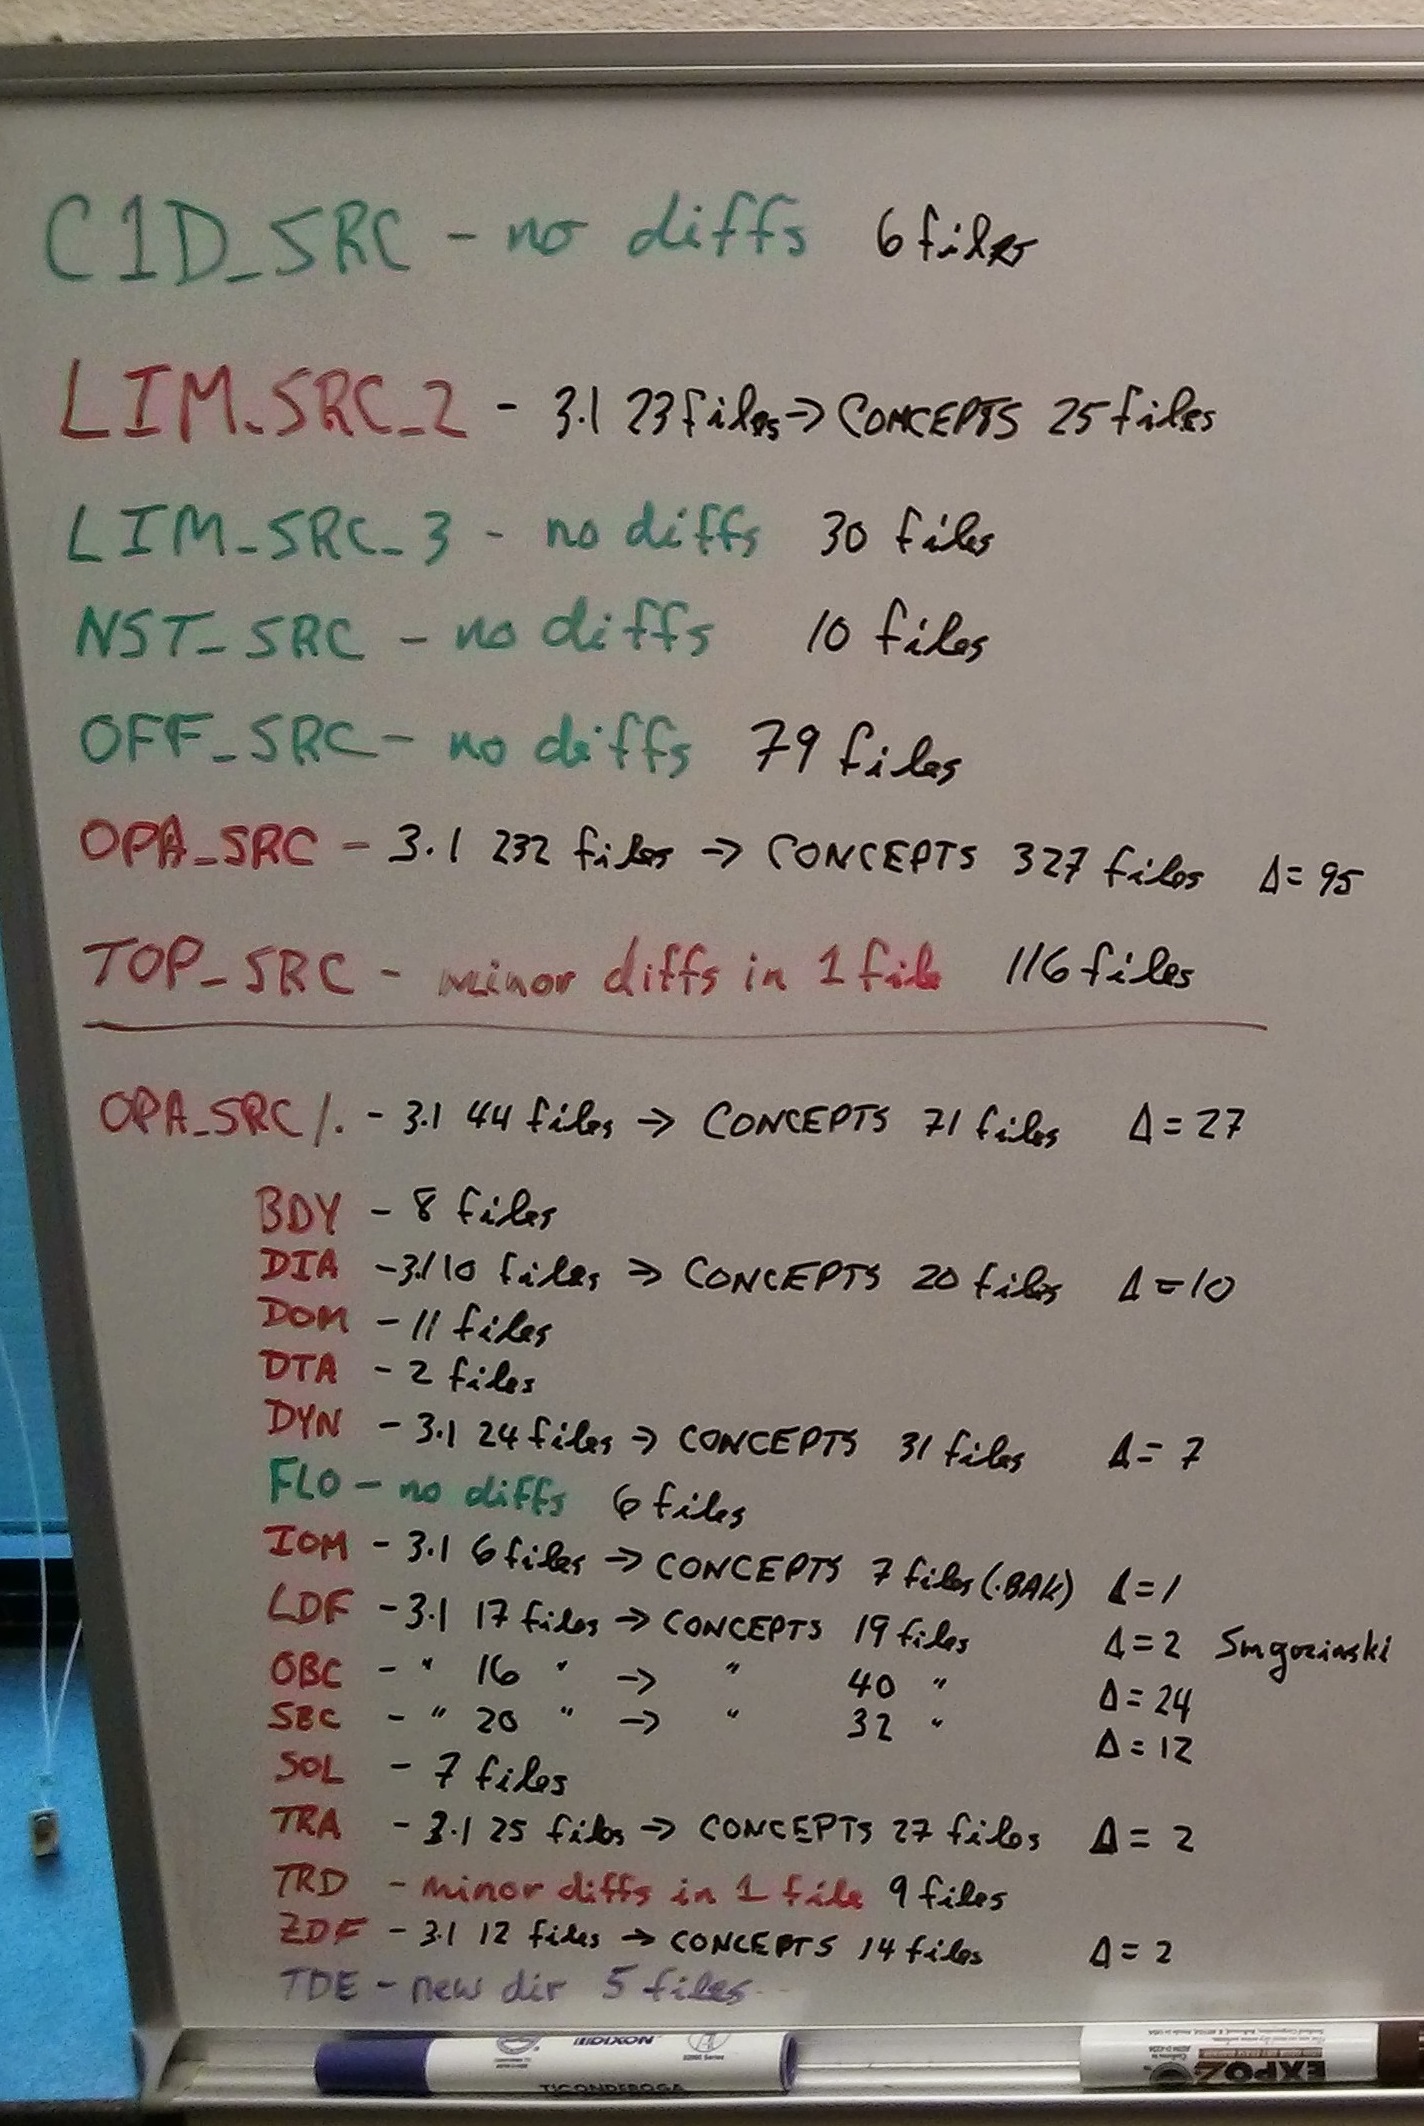 C1D_SRC - no diffs 6 files
LIM_SRC_2 - 3.1 23 files → CONCEPTS 25 files
LIM_SRC_3 - no diffs 30 files
NST_SRC - no diffs 10 files
OFF_SRC - no diffs 79 files
OPA_SRC - 3.1 232 files → CONCEPTS 327 files Δ= 95
TOP_SRC - minor diffs in 1 file 116 files
OPA_SRC/. - 3.1 44 files → CONCEPTS 71 files Δ = 27
BDY - 8 files
DIA - 3.1 10 files → CONCEPTS 20 files Δ = 10
DOM - 11 files
DTA - 2 files
DYN - 3.1 24 files → CONCEPTS 31 files Δ = 7
FLO - no diffs 6 files
IOM - 3.1 6 files → CONCEPTS 7 files (.BAK) Δ = 1
LDF - 3.1 17 files → CONCEPTS 19 files Δ = 2
OBC - " 16 " → " 40 " Δ = 24
SBC - " 20 " → " 32 " Δ = 12
SOL - 7 files
TRA - 3.1 25 files → CONCEPTS 27 files Δ = 2
TRD - minor diffs in 1 file 9 files
ZDF - 3.1 12 files → CONCEPTS 14 files Δ = 2
TDE - new dir 5 files
DIXON
TICONDEROGA
EXPO